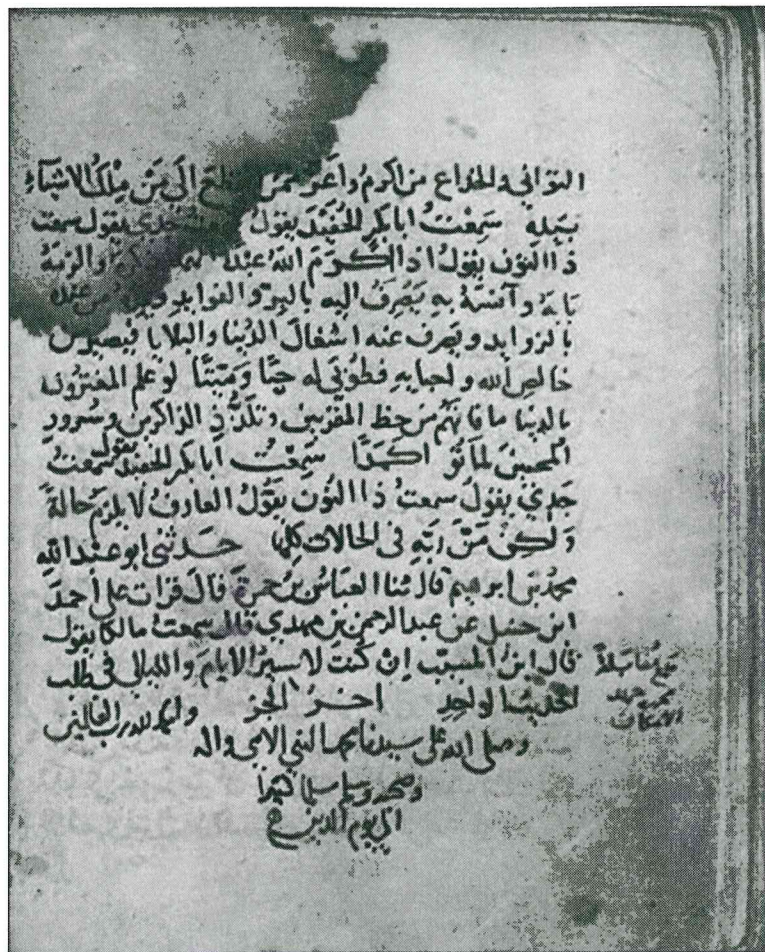 التواني والخداع من اكرم واعز ممن انقطع الى من ملك الاشياء
بيده سمعت ابا بكر الحفيد يقول سمعت جدي يقول سمعت
ذا النون يقول اذا اكرم الله عبدا ذكره والزمه
بابه وآنسه به يصرف اليه بالبر والفوايد من عند
بالزوايد ويصرف عنه اشغال الدنيا والبلايا فيصير من
خالص الله واحبابه فطوبى له حيا وميتا لو علم المغترون
بالدنيا ما فاتهم من حظ المقربين وتلذذ الذاكرين وسرور
المحبين لماتوا كمدا سمعت ابا بكر الحفيد يقول سمعت
جدي يقول سمعت ذا النون يقول العارف لا يلزم حالة
ولكن من ربه في الحالات كلها حدثني ابو عبد الله
محمد بن ابرهيم قال ثنا العباس بن حمزة قال قرات على احمد
ابن حنبل عن عبد الرحمن بن مهدي قال سمعت مالكا يقول
قال ابن المسيب ان كنت لاسير الايام والليالي في طلب
الحديث الواحد اخر الجز والحمد لله رب العالمين
وصلى الله على سيدنا محمد النبي الامي واله
وصحبه وسلم تسليما كثيرا
الى يوم الدين